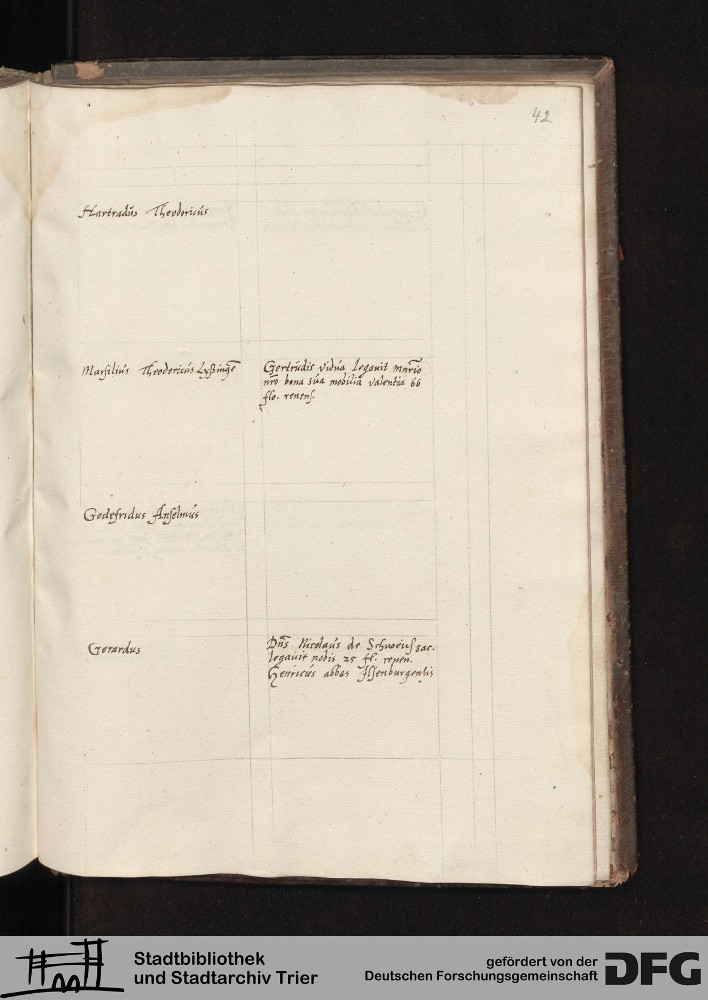 42
Hartradus Theodoricus
Marsilius Theodoricus Lyßingē
Gertrudis vidua legauit mnrio
nro bona sua mobilia valentia 66
flo. renens.
Godefridus Anselmus
Gerardus
Dns Nicolaus de sac.
legauit nobis 25 fl. renen.
Henricus abbas Ilsenburgensis
Stadtbibliothek
und Stadtarchiv Trier
gefördert von der
Deutschen Forschungsgemeinschaft
DFG